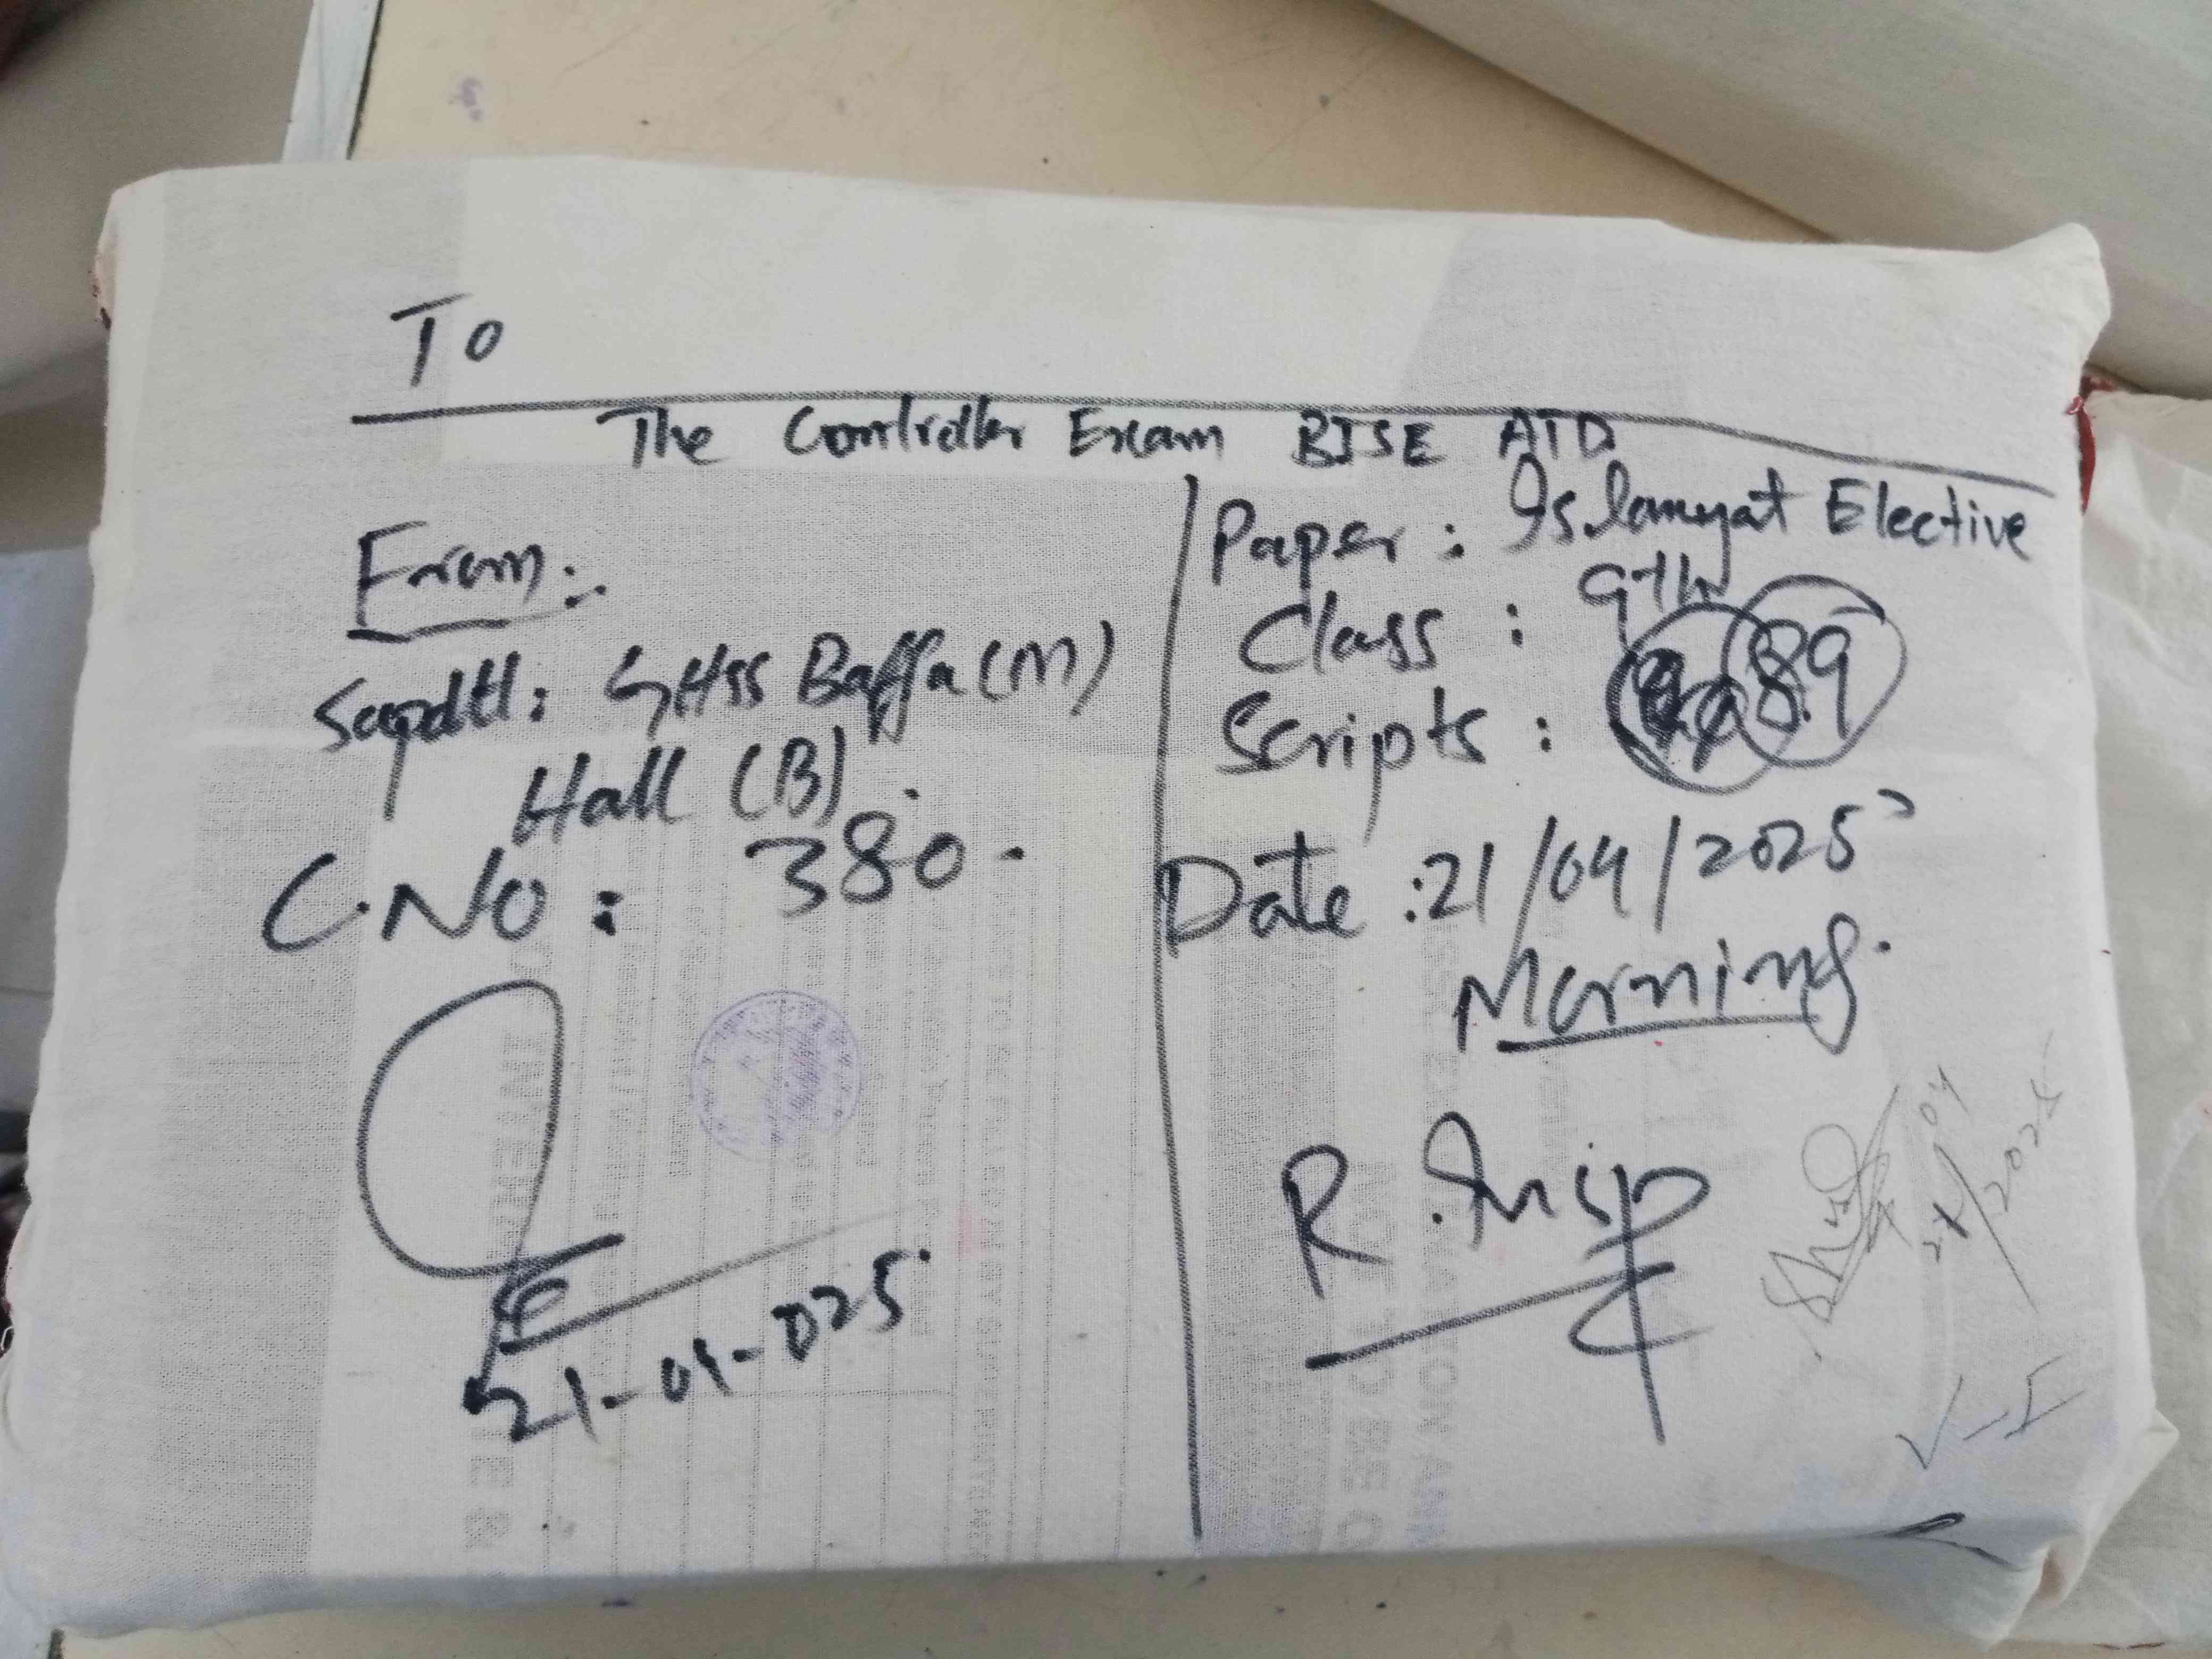 To
The Controller Exam BISE ATD
From:
Supdtt: GHSS Baffa (M)
Hall (B)
C.No: 380.
21-04-025
Paper: Islamyat Elective
Class: 9th
Scripts: 89
Date: 21/04/2025
Morning.
R. Insp
21/04/2025